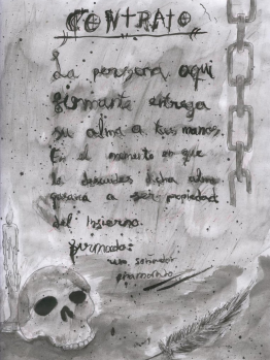 CONTRATO
La persona aqui
firmante entrega
su alma a tus manos.
En el momento en que
la durantes dicha alma
pasara a ser propiedad
del Infierno.
firmado:
un soñador